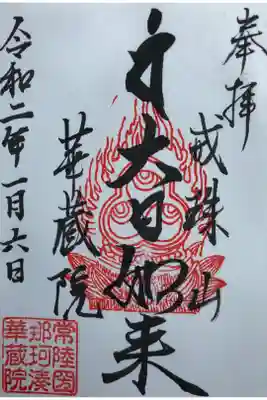 奉拝
戒珠山
大日如来
華蔵院
令和二年一月六日
常陸圀
那珂湊
華蔵院